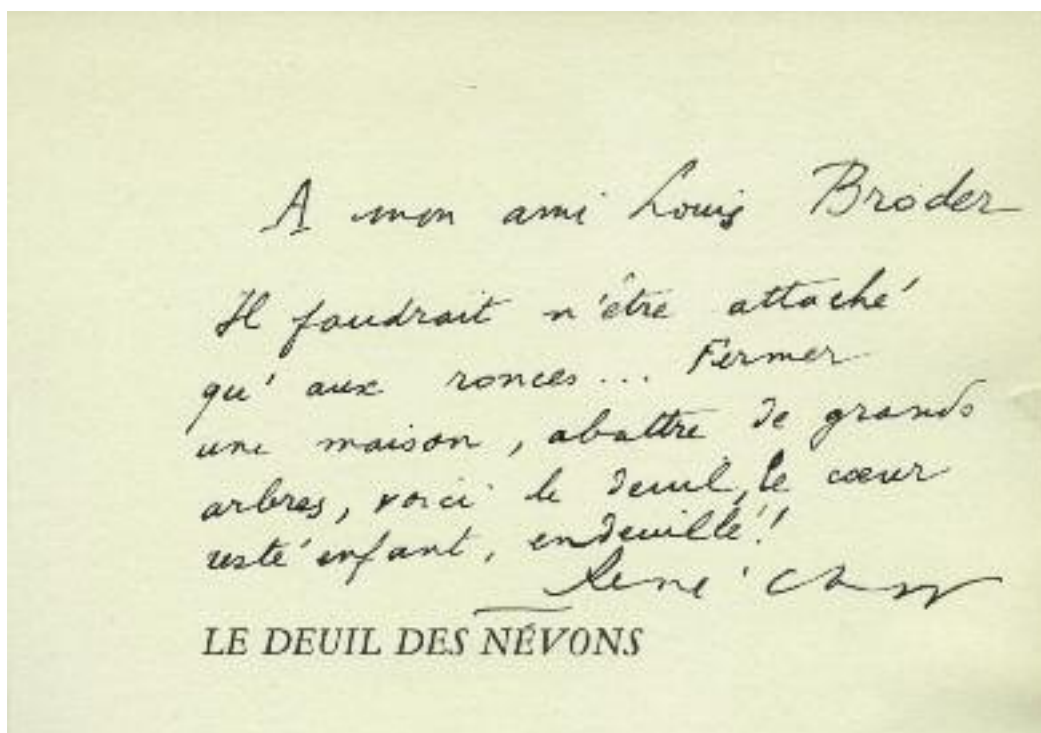 A mon ami Louis Broder
Il faudrait n'être attaché
qu'aux ronces... Fermer
une maison, abattre de grands
arbres, voici le deuil, le cœur
resté enfant, endeuillé!!
René Char
LE DEUIL DES NÉVONS